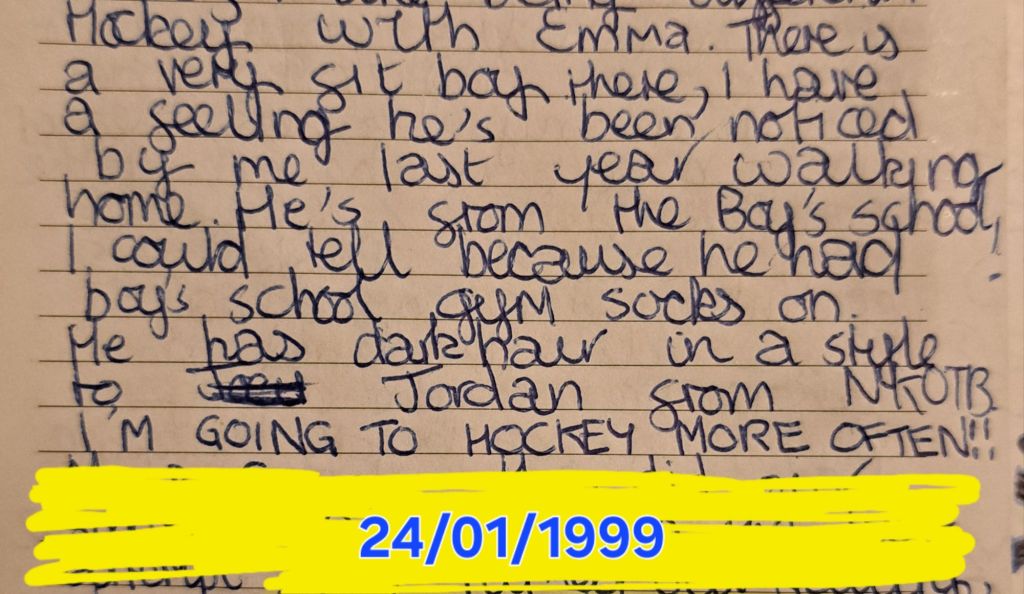 Hockey with Emma. There is
a very fit boy there, I have
a feeling he's been noticed
by me last year walking
home. He's from the Boy's school,
I could tell because he had
boy's school gym socks on.
He has dark hair in a style
to Jordan from NKOTB
I'M GOING TO HOCKEY MORE OFTEN!!
24/01/1999